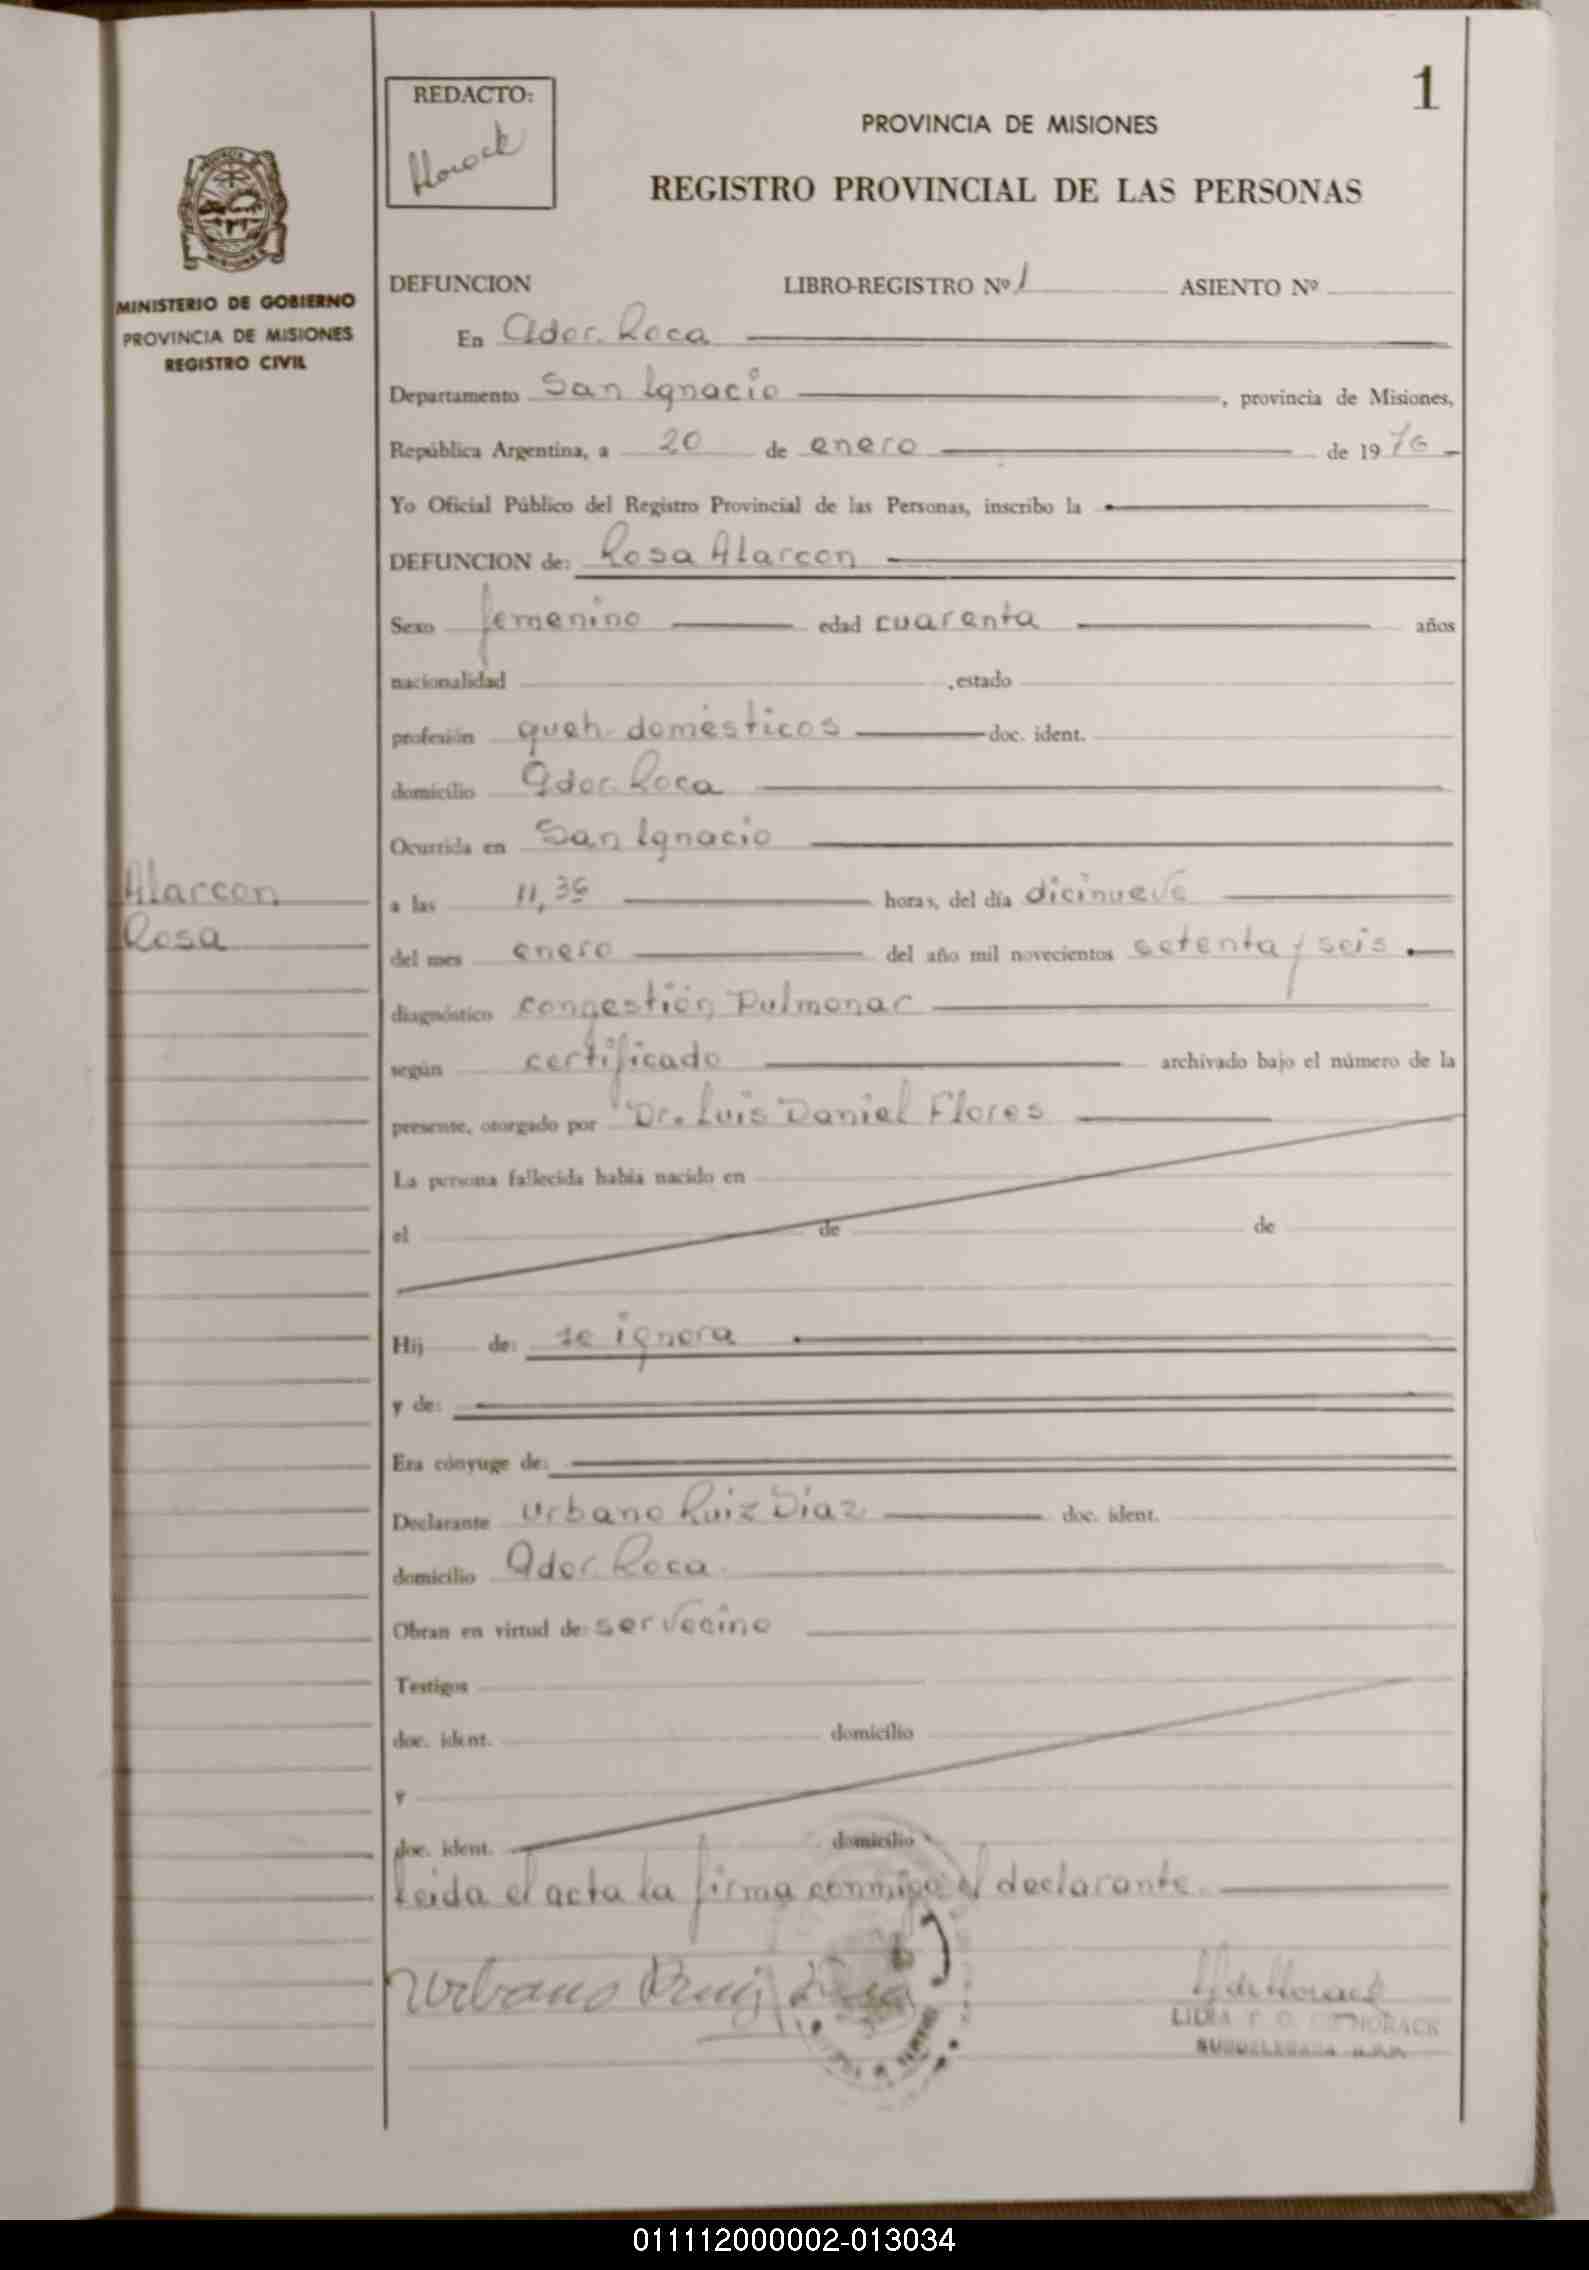 1
REDACTO:
Horack
PROVINCIA DE MISIONES
REGISTRO PROVINCIAL DE LAS PERSONAS
MINISTERIO DE GOBIERNO
PROVINCIA DE MISIONES
REGISTRO CIVIL
DEFUNCION LIBRO-REGISTRO Nº 1 ASIENTO Nº
En Gdor. Roca
Departamento San Ignacio, provincia de Misiones,
República Argentina, a 20 de enero de 1976
Yo Oficial Público del Registro Provincial de las Personas, inscribo la
DEFUNCION de: Rosa Alarcon
Sexo femenino edad cuarenta años
nacionalidad , estado
profesión queh. domésticos doc. ident.
domicilio Gdor. Roca
Ocurrida en San Ignacio
Alarcon
Rosa
a las 11,36 horas, del día dicinueve
del mes enero del año mil novecientos setenta y seis
diagnóstico congestión Pulmonar
según certificado archivado bajo el número de la
presente, otorgado por Dr. Luis Daniel Flores
La persona fallecida había nacido en
el de de
Hij de: se ignora
y de:
Era cónyuge de:
Declarante Urbano Ruiz Diaz doc. ident.
domicilio Gdor. Roca
Obran en virtud de: ser vecino
Testigos
doc. ident. domicilio
y
doc. ident. domicilio
Leida el acta la firma conmigo el declarante
Urbano Ruiz Diaz
de Horack
LIDIA DE HORACK
011112000002-013034